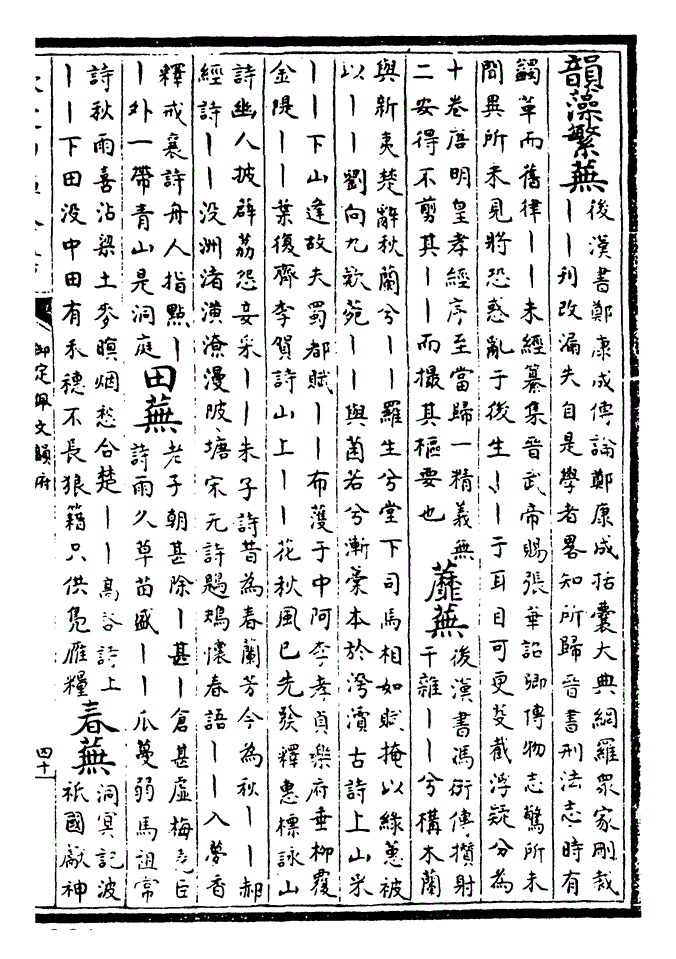 韻藻繁蕪
後漢書鄭康成傳論鄭康成括囊大典網羅衆家刪裁
丨丨刋改漏失自是學者畧知所歸晉書刑法志時有
蠲革而舊律丨丨未經纂集晉武帝賜張華詔卿傳物志驚所未
聞異所未見將恐惑亂于後生丨丨于耳目可更芟截浮疑分為
十卷唐明皇孝經序至當歸一精義無
二安得不剪其丨丨而撮其樞要也
蘼蕪
後漢書馮衍傳攢射
干雜丨丨兮構木蘭
與新夷楚辭秋蘭兮丨丨羅生兮堂下司馬相如賦掩以綠蕙被
以丨丨劉向九歎菀丨丨與菌若兮漸藁本於洿瀆古詩上山采
丨丨下山逢故夫蜀都賦丨丨布濩于中阿李孝貞樂府垂柳覆
金隄丨丨葉復齊李賀詩山上丨丨花秋風已先發釋惠標詠山
詩幽人披薜荔怨妾采丨丨朱子詩昔為春蘭芳今為秋丨丨郝
經詩丨丨没洲渚潢潦漫陂塘宋元詩題鴆懷春語丨丨入夢香
釋戒襄詩舟人指點丨
丨外一帶青山是洞庭
田蕪
老子朝甚除丨甚丨倉甚虛梅堯臣
詩雨久草苗盛丨丨瓜蔓弱馬祖常
詩秋雨喜沾梁土麥暝烟愁合楚丨丨高啓詩上
丨丨下田没中田有禾穗不長狼籍只供鳬雁糧
春蕪
洞冥記波
祇國獻神
御定佩文韻府
四十一